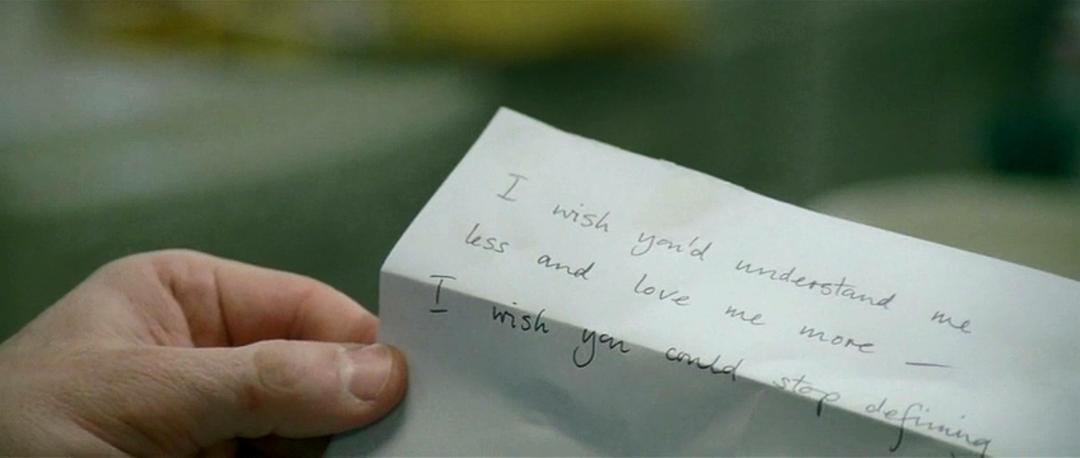 I wish you'd understand me
less and love me more —
I wish you could stop defining